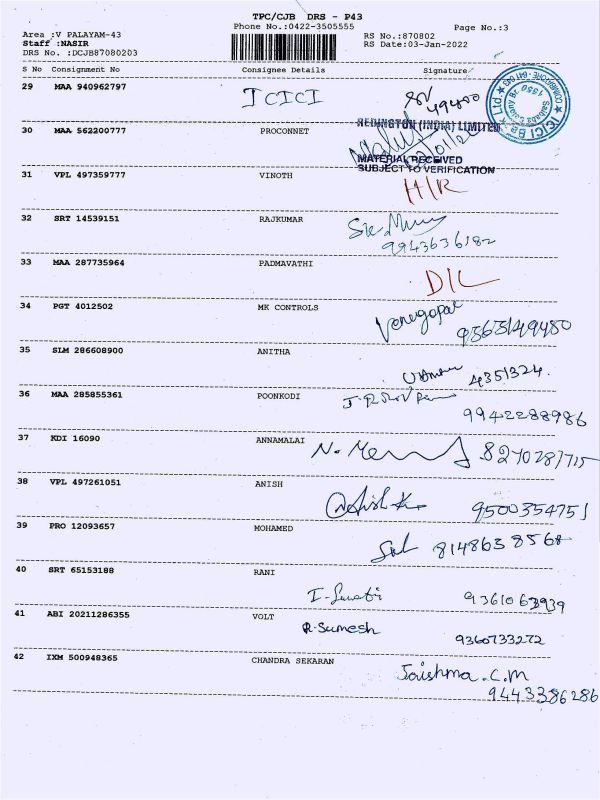 TPC/CJB DRS - P43
Phone No.:0422-3505555
Page No.:3
Area :V PALAYAM-43
RS No.:870802
Staff :NASIR
RS Date:03-Jan-2022
DRS No. :DCJB87080203
S No Consignment No Consignee Details Signature
29 MAA 940962797 ICICI
REDINGTON (INDIA) LIMITED
30 MAA 562200777 PROCONNET
MATERIAL RECEIVED
SUBJECT TO VERIFICATION
31 VPL 497359777 VINOTH H/R
32 SRT 14539151 RAJKUMAR
9943636182
33 MAA 287735964 PADMAVATHI D/L
34 PGT 4012502 MK CONTROLS Venugopal
35 SLM 286608900 ANITHA
4351324.
36 MAA 285855361 POONKODI
9942288986
37 KDI 16090 ANNAMALAI 8270287715
38 VPL 497261051 ANISH
9500354751
39 PRO 12093657 MOHAMED
8148638568
40 SRT 65153188 RANI
I. Swati 9361063939
41 ABI 20211286355 VOLT R.Sumesh
9360733272
42 IXM 500948365 CHANDRA SEKARAN
Jaishma.C.M
9443386286